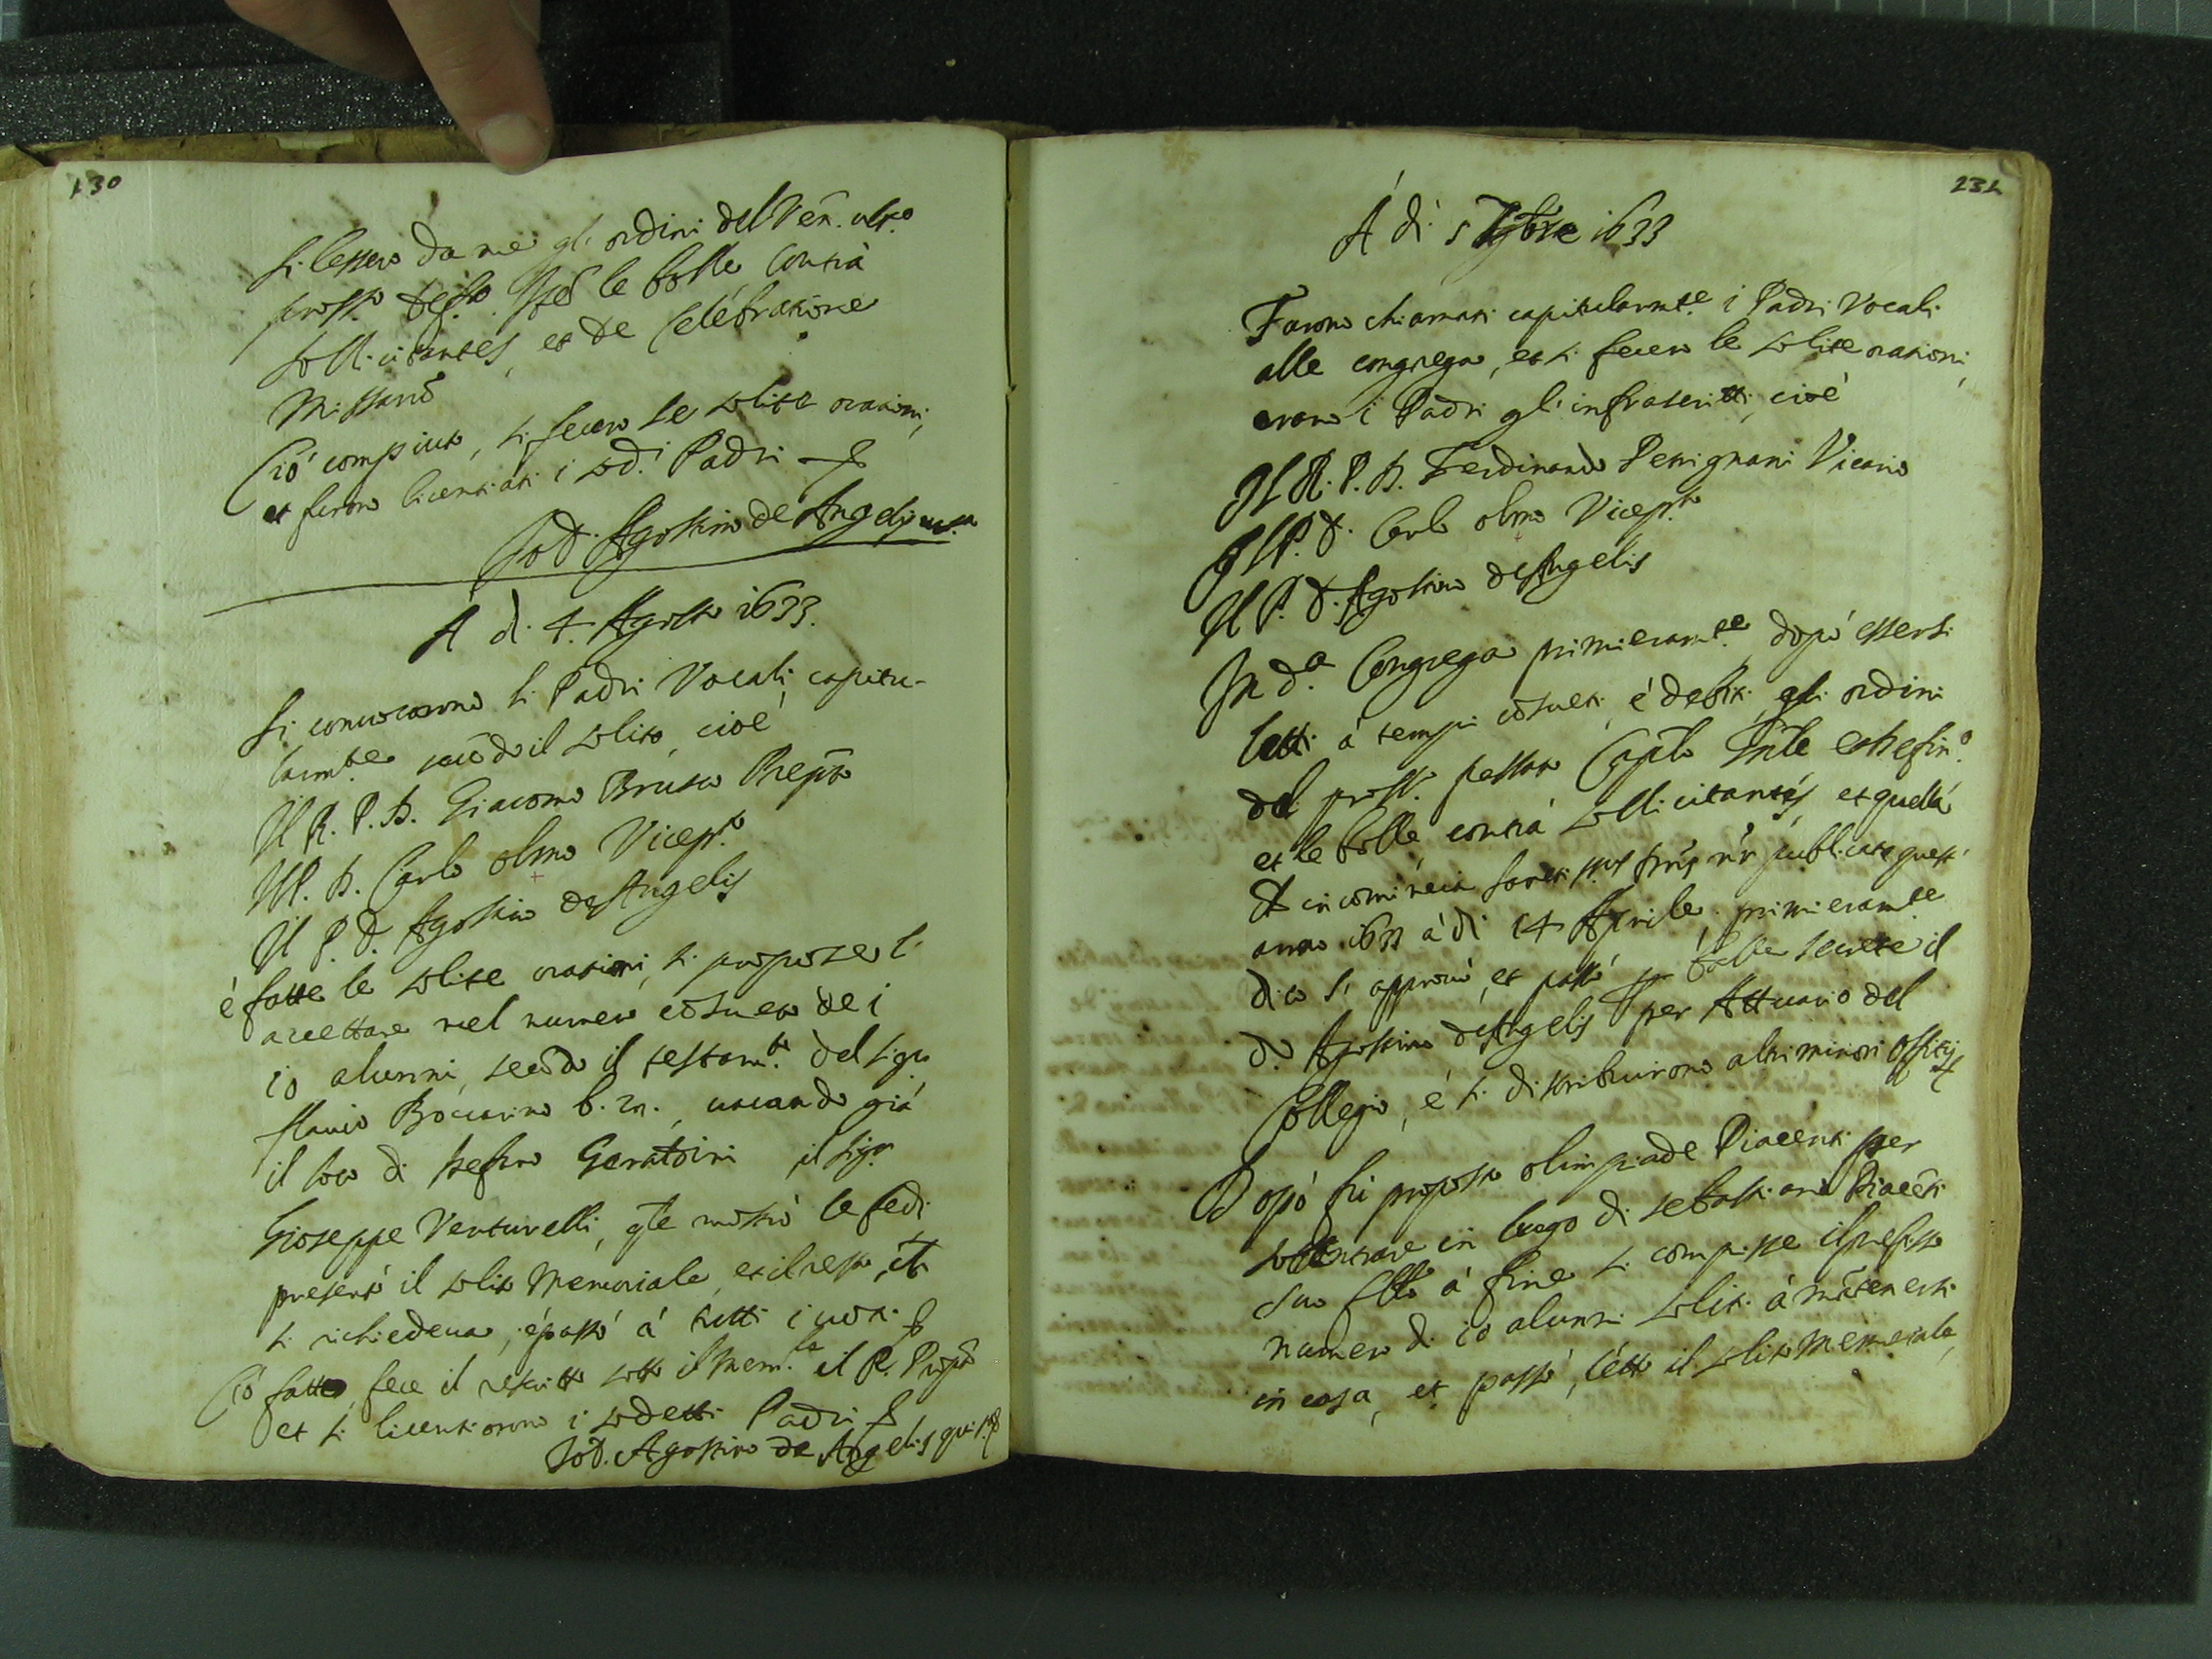 130
Si lessero da me gl' ordini del Ven. ult.o
pross.o le bolle contrà
sollicitantes, et de Celebratione
Missarū
Ciò compiuto, si fecero le solite orationi,
et furon licentiati i sod.i Padri
Io D. Agostino de Angelis
A dì 4. Agosto 1633.
Si convocorono li Padri Vocali capitu-
larm.te secōdo il solito, cioè
Il R. P. D. Giacomo Brusco Prep.to
Il P. D. Carlo olmo Vicep.to
Il P. D. Agostino de Angelis
é fatte le solite orationi, si propose l'
accettare nel numero cōsueto de i
10 alunni, secōdo il testam.to del sig.r
flavio Boccarino b. m., vacando già
il loco di stefano il sig.r
Gioseppe Venturelli, q.le mostrò le fedi
presentò il solito Memoriale, et il resto, ch
si richiedeva, é passò à tutti i voti
Ciò fatto, fece il rescritto sotto il Mem.le il R. Prep.to
et si licentiorono i sodetti Padri
Io D. Agostino de Angelis
231
A' dì 5 7mbre 1633
Furono chiamati capitularm.te i Padri Vocali
alle congrega, et si fecero le solite orationi,
erano i Padri gl' infrascritti, cioè
Il R. P. D. Ferdinando Petrignani Vicario
Il P. D. Carlo olmo Vicep.to
Il P. D. Agostino de Angelis
In d.a Congrega primieram.te dopò essersi
letti à tempi cōsueti, é debiti, gli ordini
del pross.o passato Cap.lo
et le bolle contrà sollicitantes, et quella
Et incomincia publicata quest'
anno 1633 à dì 14 Aprile, primieram.te
dico si approvò, et passò p balle secrete il
D. Agostino de Angelis per Attuario del
Collegio, é si distribuirono altri minori offitij
Dopò fù proposto olimpiade Piacenti per
sottentrare in luogo di sebastiano Piacēti
suo f.llo à fine si compisse il prefisso
numero di 10 alunni soliti à mātenersi
in casa, et passò, letto il solito Memoriale,